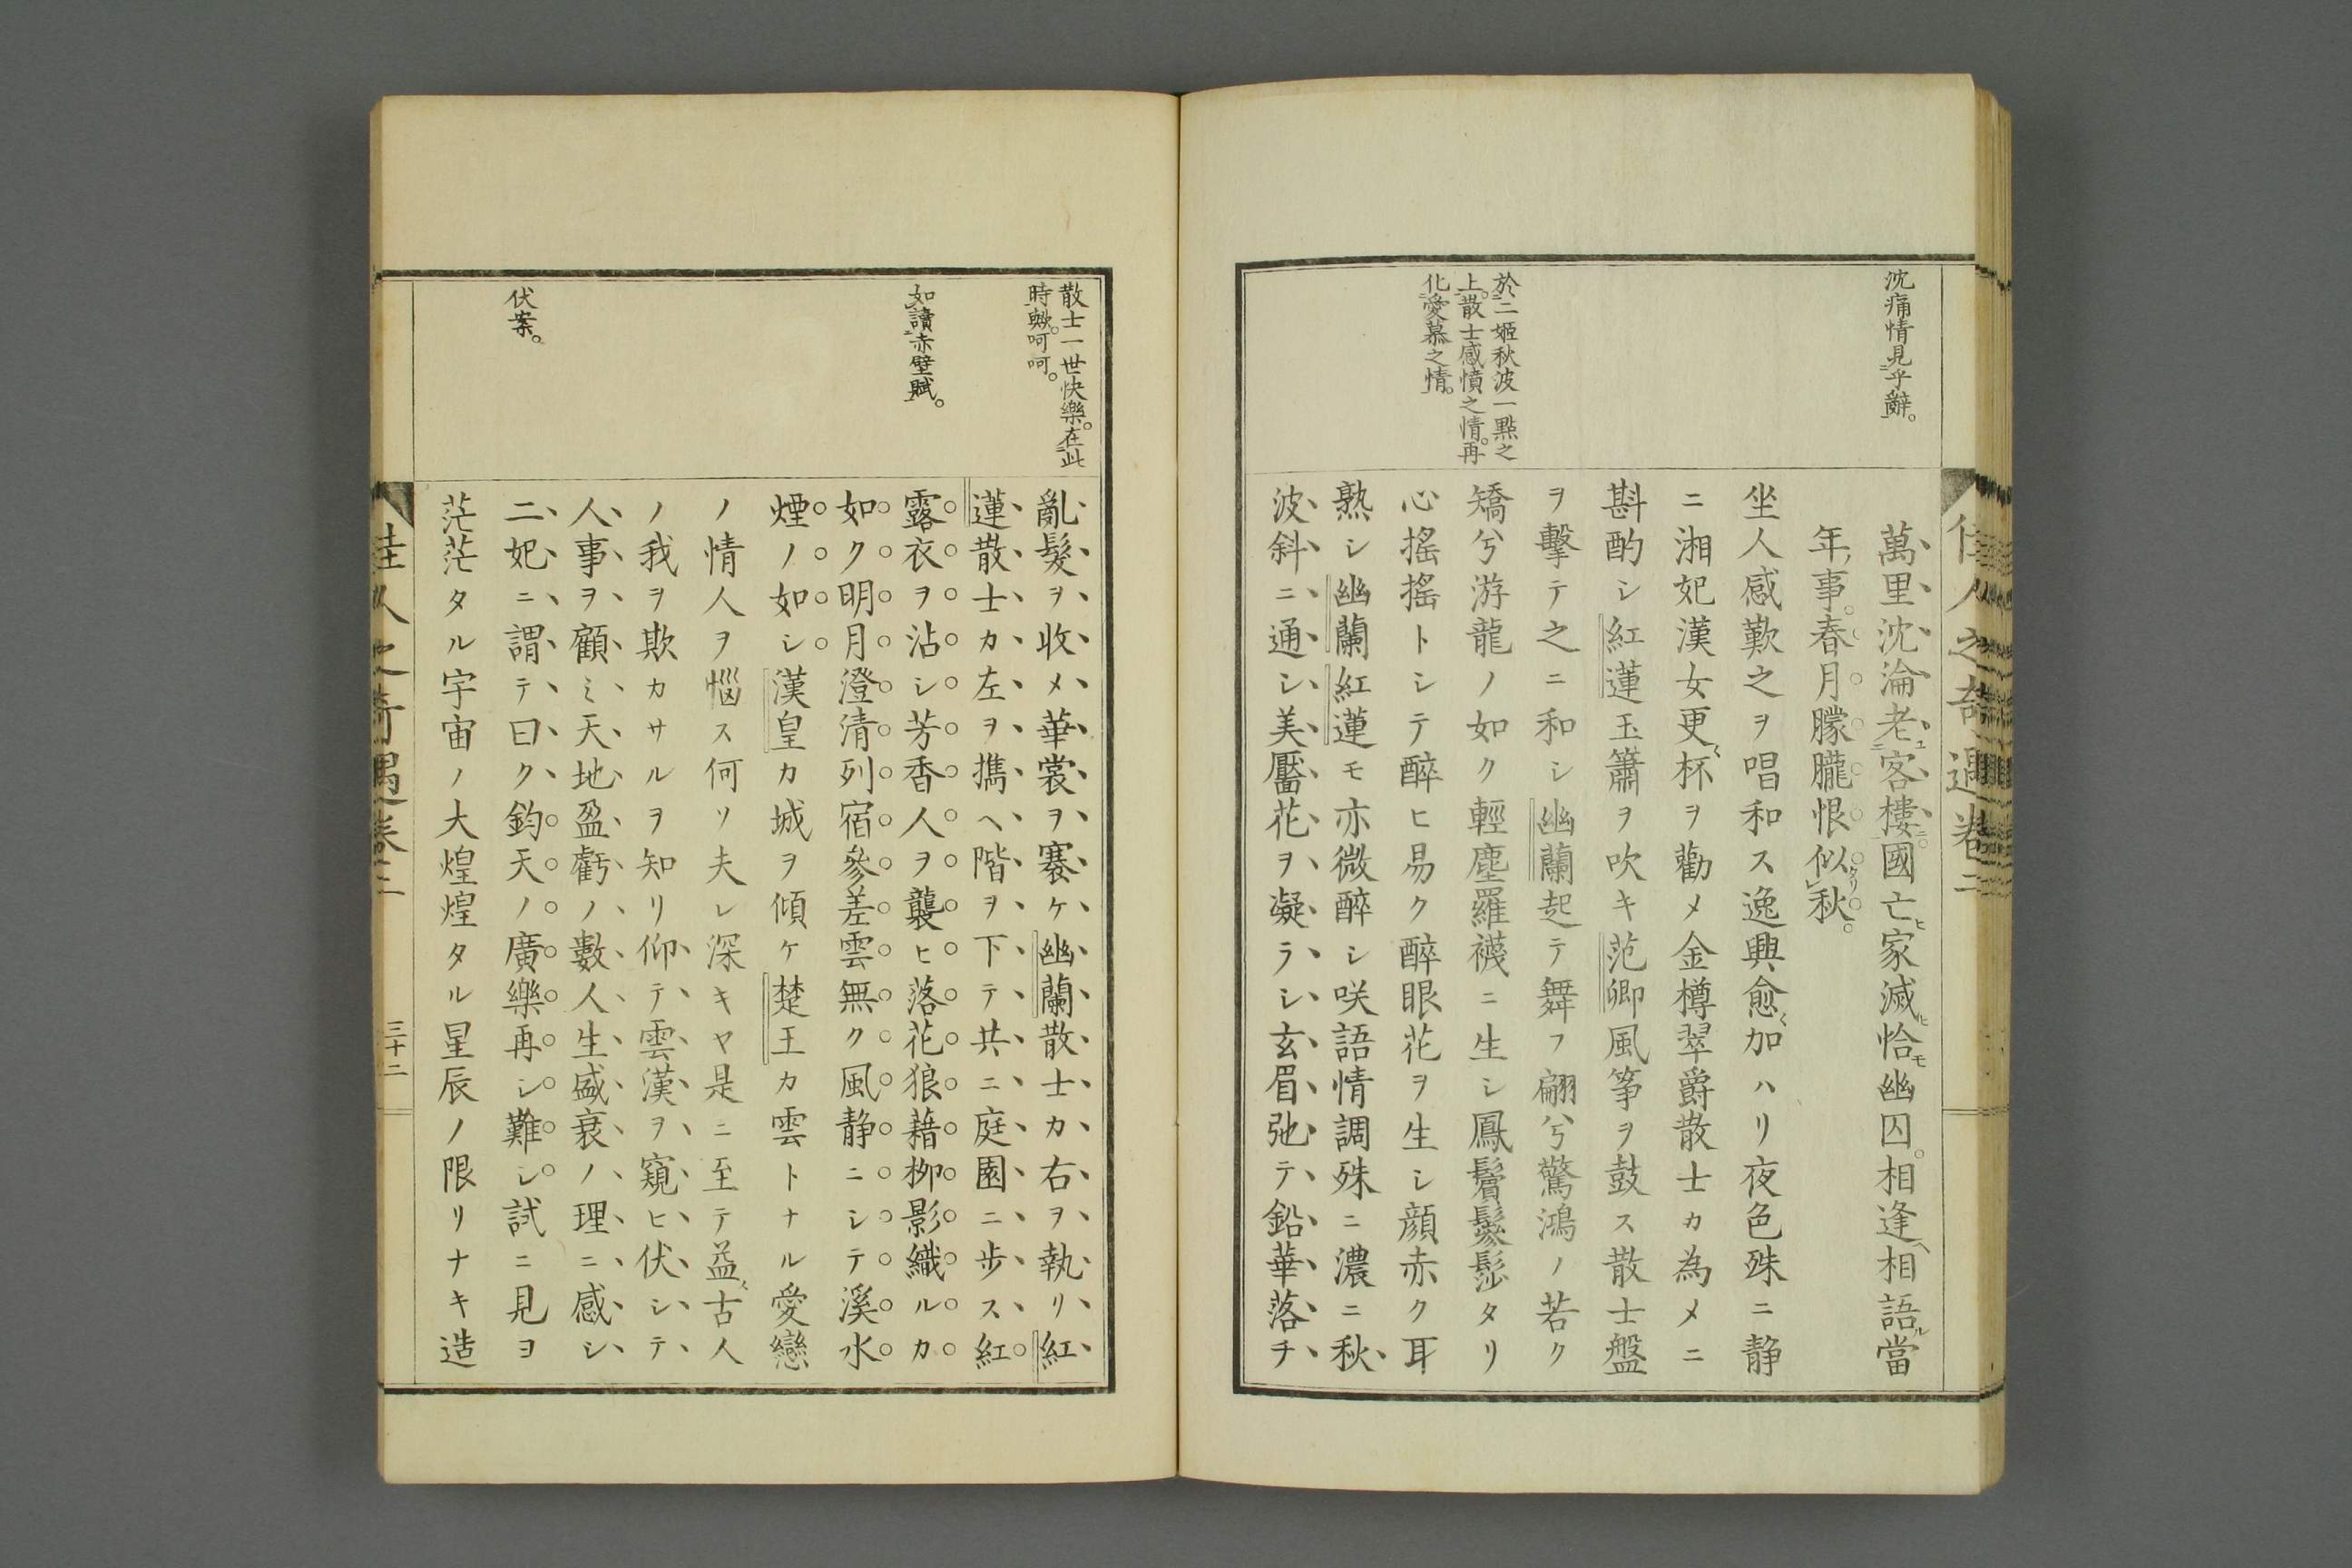 佳人之奇遇卷二
沈痛情見乎辭。
萬里沈淪老客樓國亡家滅恰幽囚。相逢相語當
年事。春月朦朧恨似秋。
坐人感歎之ヲ唱和ス逸興愈加ハリ夜色殊ニ静
ニ湘妃漢女更杯ヲ勸メ金樽翠爵散士カ為メニ
斟酌シ紅蓮玉簫ヲ吹キ范卿風筝ヲ鼓ス散士盤
ヲ擊テ之ニ和シ幽蘭起テ舞フ翩兮驚鴻ノ若ク
矯兮游龍ノ如ク輕塵羅襪ニ生シ鳳鬢鬖髿タリ
於二姬秋波一點之
上。散士感憤之情。再
化愛慕之情。
心搖搖トシテ醉ヒ易ク醉眼花ヲ生シ顔赤ク耳
熟シ幽蘭紅蓮モ亦微醉シ咲語情調殊ニ濃ニ秋
波斜ニ通シ美靨花ヲ凝ラシ玄眉弛テ鉛華落チ
散士一世快樂。在此
時歟。呵呵。
亂髮ヲ收メ華裳ヲ褰ケ幽蘭散士カ右ヲ執リ紅
蓮散士カ左ヲ擕ヘ階ヲ下テ共ニ庭園ニ步ス紅
如讀赤壁賦。
露衣ヲ沾シ芳香人ヲ襲ヒ落花狼藉柳影織ルカ
如ク明月澄清列宿參差雲無ク風静ニシテ溪水
煙ノ如シ漢皇カ城ヲ傾ケ楚王カ雲トナル愛戀
ノ情人ヲ惱ス何ソ夫レ深キヤ是ニ至テ益古人
ノ我ヲ欺カサルヲ知リ仰テ雲漢ヲ窺ヒ伏シテ
人事ヲ顧ミ天地盈虧ノ數人生盛衰ノ理ニ感シ
伏案。
二妃ニ謂テ曰ク鈞天ノ廣樂再シ難シ試ニ見ヨ
茫茫タル宇宙ノ大煌煌タル星辰ノ限リナキ造
佳人之奇遇卷二
三十二